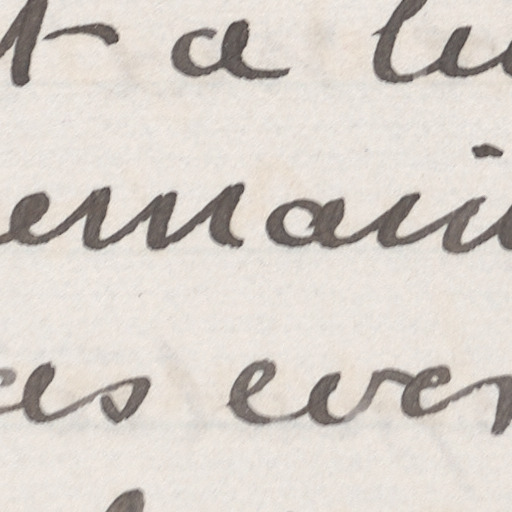 t a lu
emain
es ever